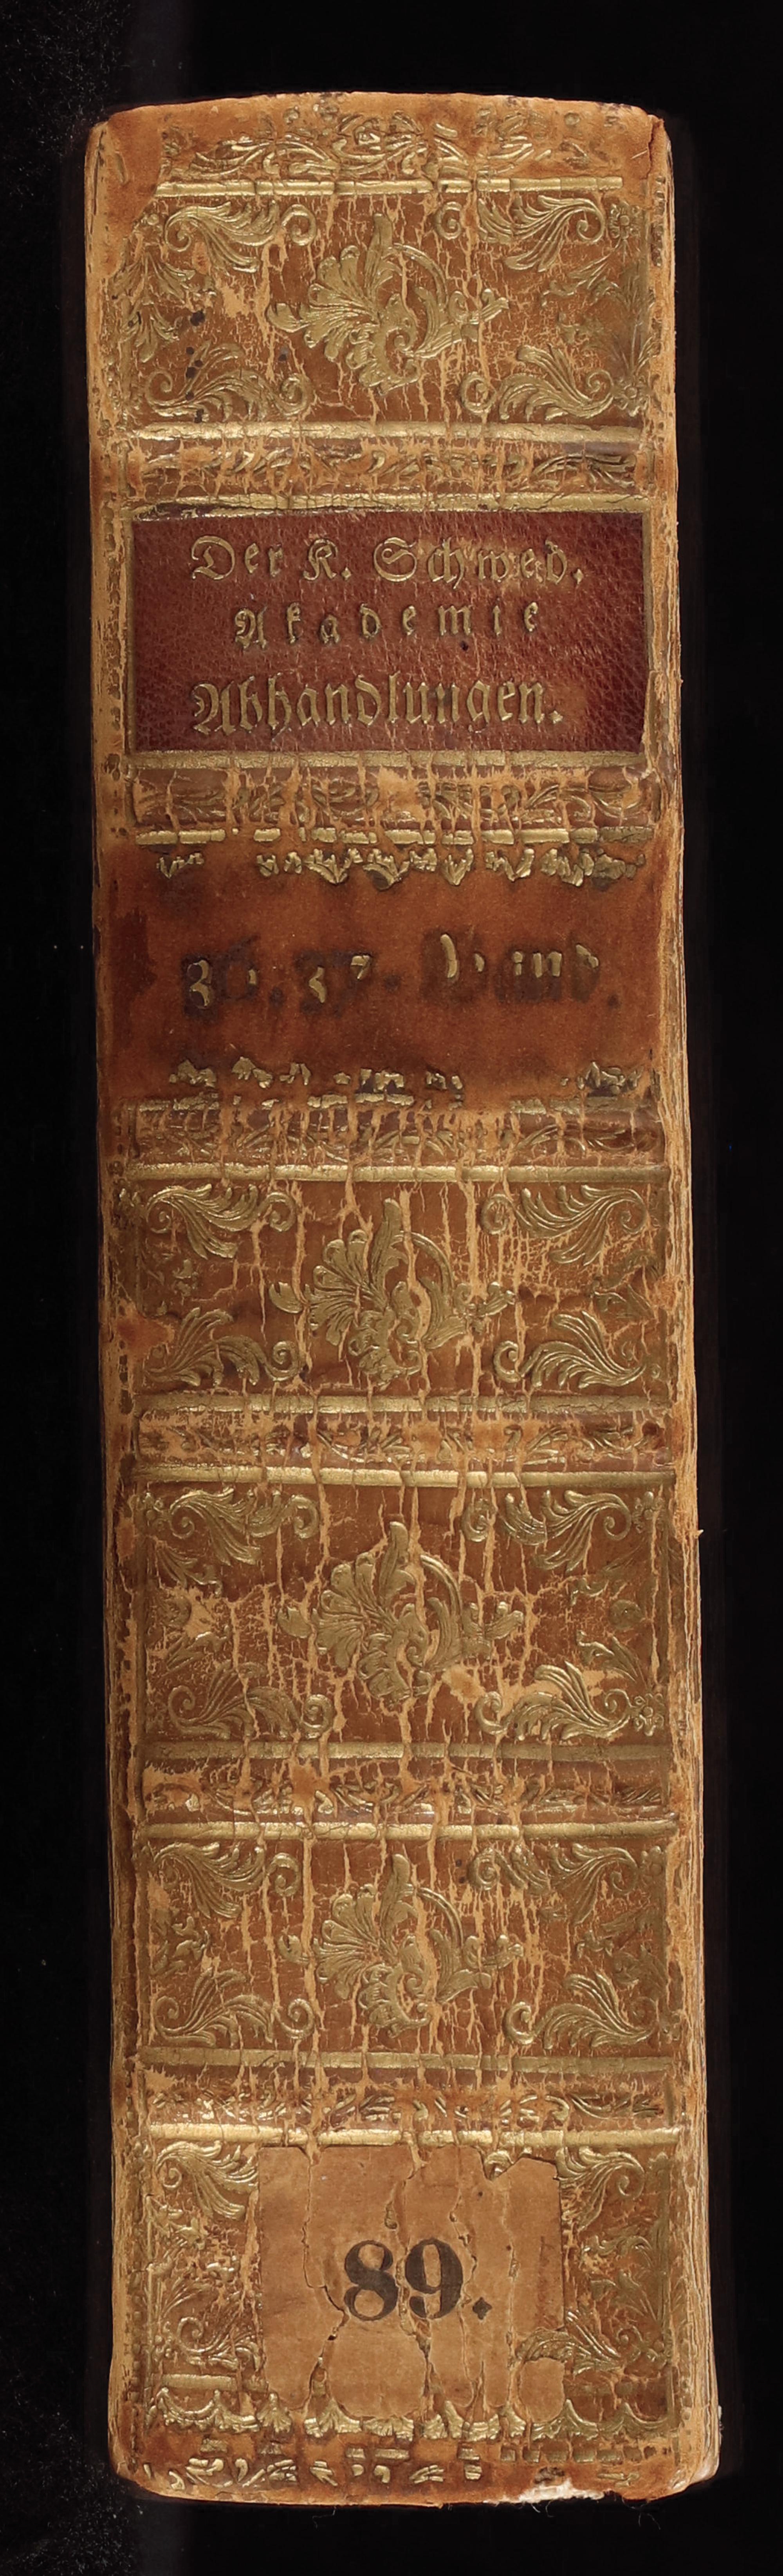 Der K. Schwed.
Akademie
Abhandlungen.
36. 37. Band.
89.